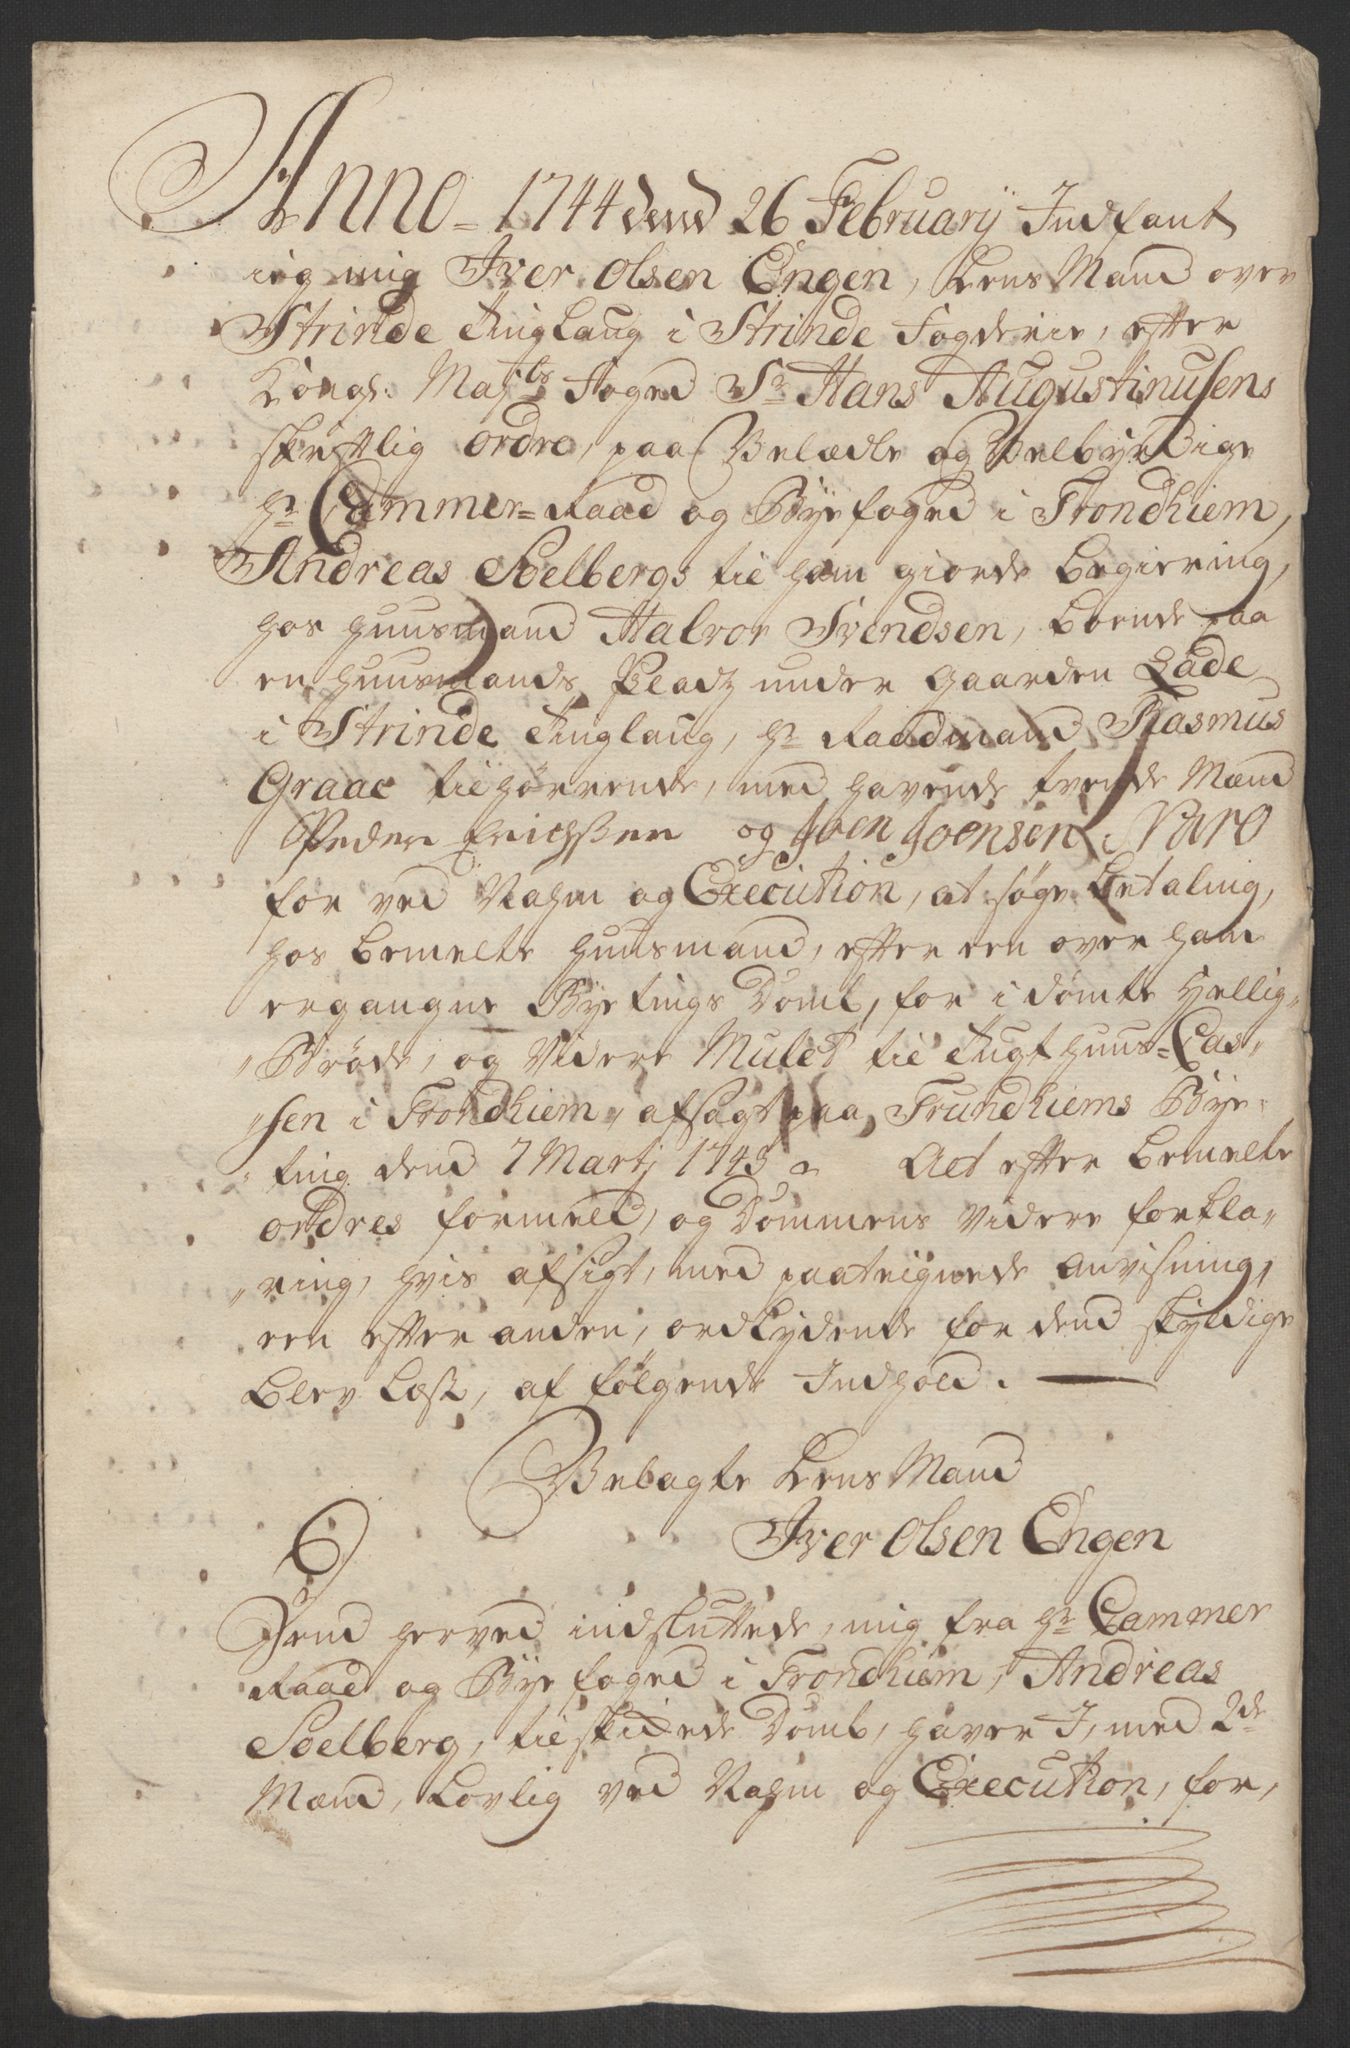 Anno 1744 dend 26 Februarij Indfant
ieg mig Iver Olsen Engen, LensMand over
Strinde Tinglaug i Strinde Fogderie, efter
Kongl: Maj:ts Foged Sr Hans Augustinusens
skriftlig ordre, paa Velædle og Velbyrdige
Hr Cammer=Raad og Byefoged i Trondhiem,
Andreas Soelbergs til ham giorde begiering,
hos huusmand Halvor Svendsen, boende paa
en huusmands Pladz under Gaarden Lade
i Strinde Tinglaug, Hr Raadmand Rasmus
Graae tilhørrende, med havende tvende Mænd
Peder Erichssen og Joen Joensen Varo
for ved Nahm og Execution, at søge betaling,
hos bemelte huusmand, efter een over ham
ergangne Byetings Domb, for idømte Hellig„
„Brøde, og Videre Mulct til Tugthuus=Cas„
„sen i Trondhiem„ afsagt paa Trundhiems Bye„
„ting dend 7 Martj 1743. Alt efter bemelte
ordres formeld, og Dommens Videre forkla„
„ring, hvis afsigt, med paateignede anvisning,
een efter anden, ordlydende for dend skyldige
blev læst, af følgende Indhold. —
Velagte LensMand
Iver Olsen Engen
Dend herved indsluttede, mig fra Hr Cammer
Raad og Byefoged i Trondhiem, Andreas
Soelberg, tilskikede Domb, haver I, med 2de
Mænd, Lovlig ved Nahm og Execution, for,